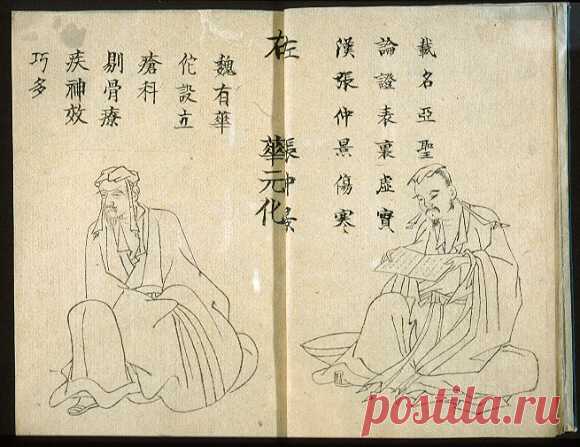 漢張仲景傷寒
論證表裏虛實
載名亞聖
張仲景
華元化
魏有華
佗設立
瘡科
剔骨療
疾神效
巧多
postila.ru